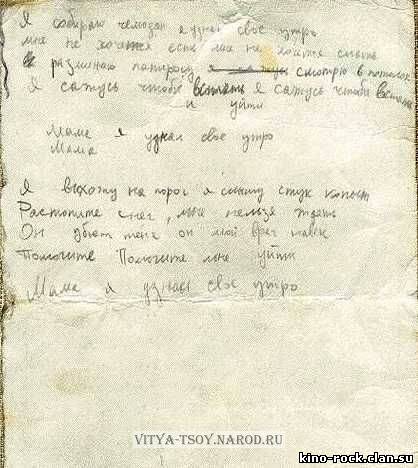 Я собираю чемодан я узнал свое утро
мне не хочется есть мне не хочется спать
Я разминаю папиросу смотрю в потолок
Я сажусь чтобы встать Я сажусь чтобы встать
и уйти
Мама я узнал свое утро
Мама
Я выхожу на порог я слышу стук копыт
Растопите снег, мне нельзя ждать
Он убьет меня он мой враг навек
Помогите Помогите мне уйти
Мама я узнал свое утро
VITYA-TSOY.NAROD.RU
kino-rock.clan.su